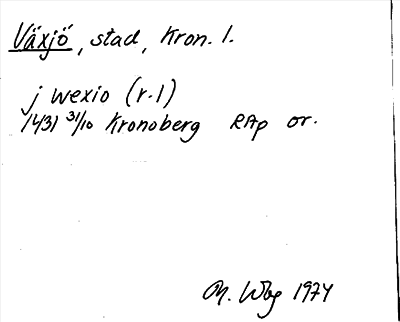 Växjö, stad, Kron. l.
j wexio (r.1)
1431 31/10 Kronoberg RAp or.
1974